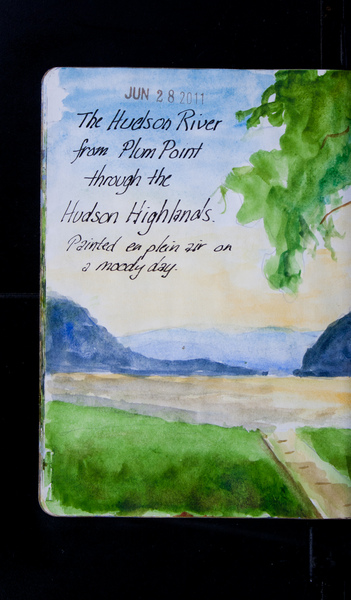 JUN 28 2011
The Hudson River
from Plum Point
through the
Hudson Highlands.
Painted en plein air on
a moody day.